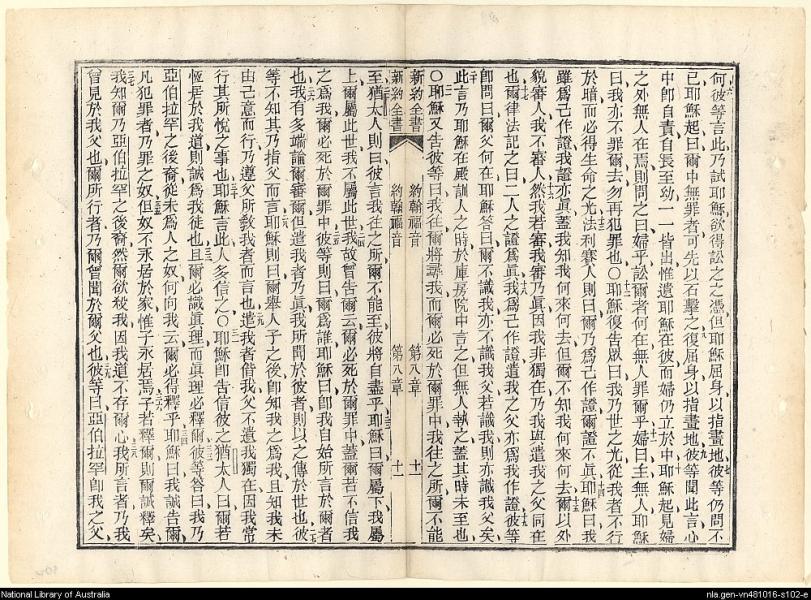 何彼等言此乃試耶穌欲得訟之之憑但耶穌屈身以指畫地彼等仍問不
已耶穌起曰爾中無罪者可先以石擊之復屈身以指畫地彼等聞此言心
中即自責自長至幼一一皆出惟遺耶穌在彼而婦仍立於中耶穌起見婦
之外無人在焉則問之曰婦乎訟爾者何在無人罪爾乎婦曰主無人耶穌
曰我亦不罪爾去勿再犯罪也〇耶穌復告眾曰我乃世之光從我者不行
於暗而必得生命之光𠵽利賽人則曰爾乃為己作證爾證不眞耶穌曰我
雖為己作證我證亦眞蓋我知我何來何去但爾不知我何來何去爾以外
貌審人我不審人然我若審我審乃眞因我非獨在乃我與遣我之父同在
也爾律法記之曰二人之證為眞我為己作證遣我之父亦為我作證彼等
即問曰爾父何在耶穌答曰爾不識我亦不識我父若識我則亦識我父矣
此言乃耶穌在殿訓人之時於庫房院中言之但無人執之蓋其時未至也
〇耶穌又告彼等曰我往爾將尋我而爾必死於爾罪中我往之所爾不能
新約全書 約翰福音 第八章 十一
新約全書 約翰福音 第八章 十一
至猶太人則曰彼言我往之所爾不能至彼將自盡乎耶穌曰爾屬下我屬
上爾屬此世我不屬此世我故曾告爾云爾必死於爾罪中蓋爾若不信我
之為我爾必死於爾罪中彼等則曰爾為誰耶穌曰即我自始所言於爾者
也我有多端論爾審爾但遣我者乃眞我所聞於彼者則以之傳於世也彼
等不知其乃指父而言耶穌則曰爾舉人子之後即知我之為我且知我未
由己意而行乃遵父所教我者而言也遣我者偕我父不遺我獨在因我常
行其所悅之事也耶穌言此人多信之〇耶穌即告信彼之猶太人曰爾若
恆居於我道則誠為我徒也且爾必識眞理而眞理必釋爾彼等答曰我乃
亞伯拉罕之後裔從未為人之奴何向我云爾必得釋乎耶穌曰我誠告爾
凡犯罪者乃罪之奴但奴不永居於家惟子永居焉子若釋爾則爾誠釋矣
我知爾乃亞伯拉罕之後裔然爾欲殺我因我道不存爾心我所言者乃我
曾見於我父也爾所行者乃爾曾聞於爾父也彼等曰亞伯拉罕即我之父
National Library of Australia
nla.gen-vn481016-s102-e